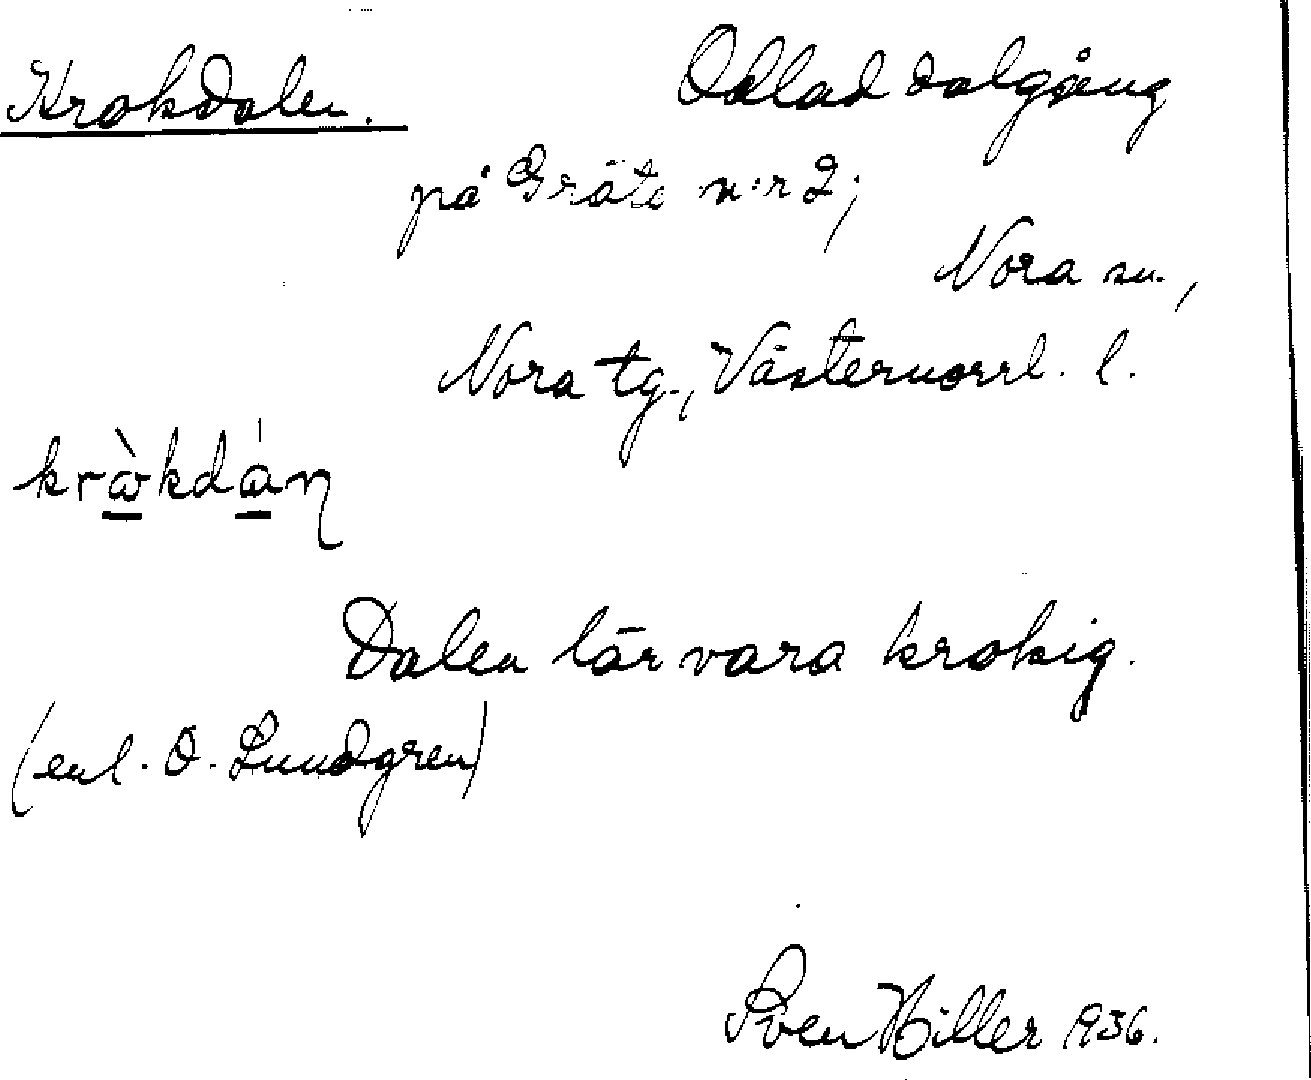 Krokdalen. Odlad dalgång
på Gräte n:r 2;
Nora sn.,
Nora tg., Västernorrl. l.
Dalen lär vara krokig.
(enl. O. Lundgren)
Sven Hiller 1936.